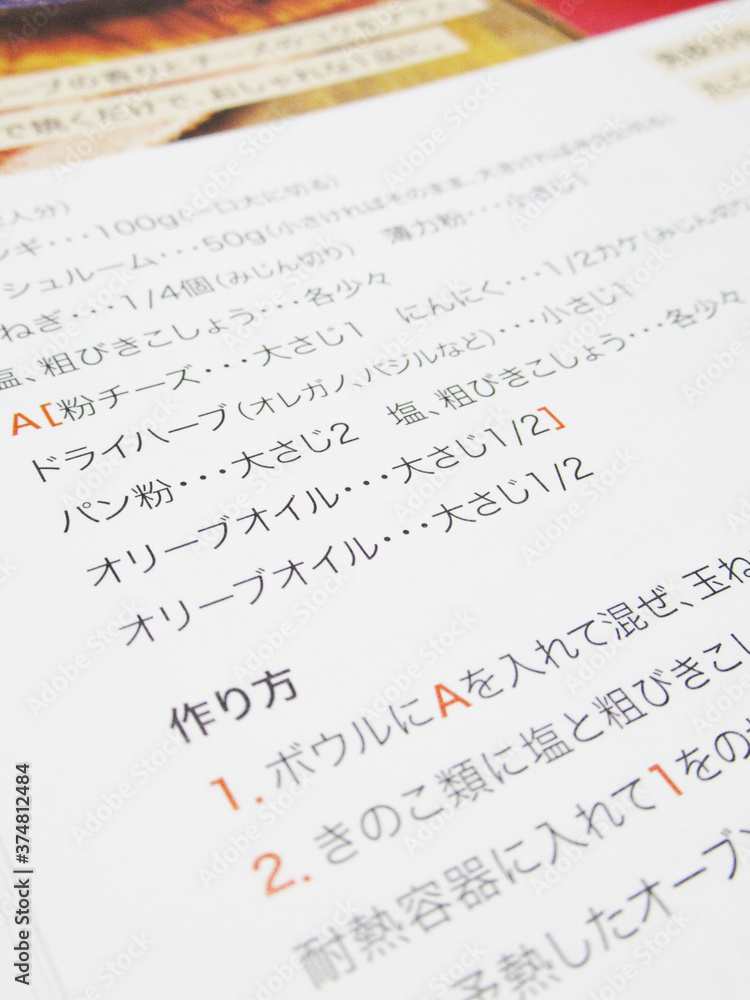 ーブの香りとチーズのコクをプラス
で焼くだけで、おしゃれな1品に。
人分)
ンギ・・・100g(一口大に切る)
シュルーム・・・50g(小さければそのまま、大きければ半分に切る)
ねぎ・・・1/4個(みじん切り) 薄力粉・・・小さじ1
塩、粗びきこしょう・・・各少々 にんにく・・・1/2カケ(みじん切り
A[粉チーズ・・・大さじ1
ドライハーブ(オレガノ、バジルなど)・・・小さじ1
パン粉・・・大さじ2 塩、粗びきこしょう・・・各少々
オリーブオイル・・・大さじ1/2]
オリーブオイル・・・大さじ1/2
作り方
1. ボウルにAを入れて混ぜ、玉ね
2. きのこ類に塩と粗びきこし
耐熱容器に入れて1をの
予熱したオーブン
Adobe Stock | #374812484